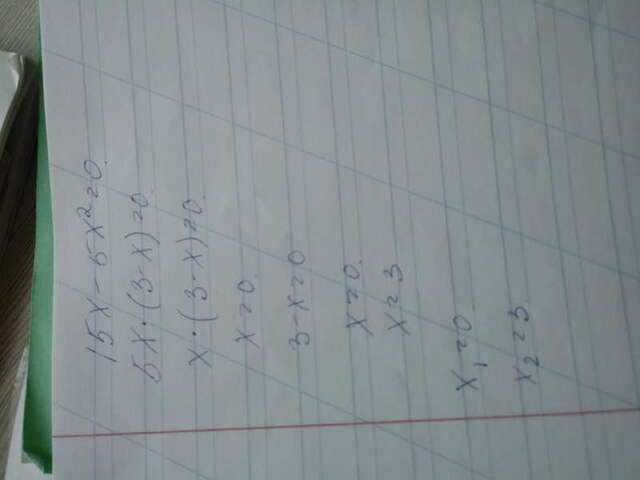 15x-5x²=0.
5x·(3-x)=0.
x·(3-x)=0.
x=0.
3-x=0
x=0.
x=3
x₁=0
x₂=3